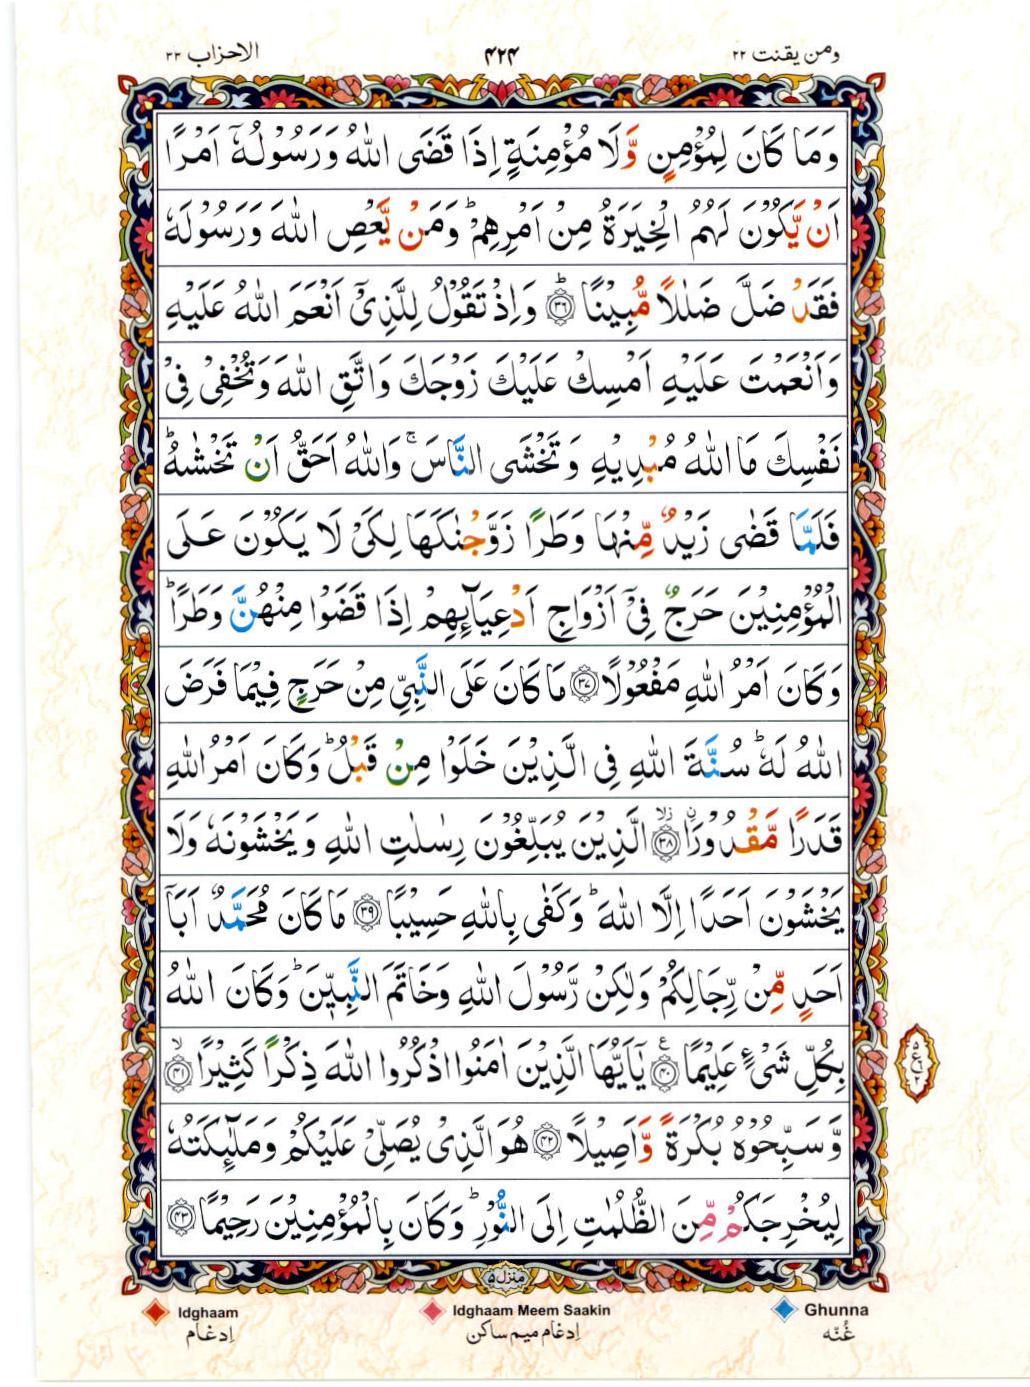 ومن يقنت ٢٢
۴۲۴
الاحزاب ٣٣
وَمَا كَانَ لِمُؤْمِنٍ وَّلَا مُؤْمِنَةٍ اِذَا قَضَى اللّٰهُ وَرَسُوْلُهٗۤ اَمْرًا
اَنْ يَّكُوْنَ لَهُمُ الْخِيَرَةُ مِنْ اَمْرِهِمْ ؕ وَمَنْ يَّعْصِ اللّٰهَ وَرَسُوْلَهٗ
فَقَدْ ضَلَّ ضَلٰلًا مُّبِيْنًا ؕ ﴿۳۶﴾ وَاِذْ تَقُوْلُ لِلَّذِىْۤ اَنْعَمَ اللّٰهُ عَلَيْهِ
وَاَنْعَمْتَ عَلَيْهِ اَمْسِكْ عَلَيْكَ زَوْجَكَ وَاتَّقِ اللّٰهَ وَتُخْفِىْ فِىْ
نَفْسِكَ مَا اللّٰهُ مُبْدِيْهِ وَتَخْشَى النَّاسَ ۚ وَاللّٰهُ اَحَقُّ اَنْ تَخْشٰىهُ ؕ
فَلَمَّا قَضٰى زَيْدٌ مِّنْهَا وَطَرًا زَوَّجْنٰكَهَا لِكَىْ لَا يَكُوْنَ عَلَى
الْمُؤْمِنِيْنَ حَرَجٌ فِىْۤ اَزْوَاجِ اَدْعِيَآئِهِمْ اِذَا قَضَوْا مِنْهُنَّ وَطَرًا ؕ
وَكَانَ اَمْرُ اللّٰهِ مَفْعُوْلًا ﴿۳۷﴾ مَا كَانَ عَلَى النَّبِىِّ مِنْ حَرَجٍ فِيْمَا فَرَضَ
اللّٰهُ لَهٗ ؕ سُنَّةَ اللّٰهِ فِى الَّذِيْنَ خَلَوْا مِنْ قَبْلُ ؕ وَكَانَ اَمْرُ اللّٰهِ
قَدَرًا مَّقْدُوْرًا ﴿۳۸﴾ الَّذِيْنَ يُبَلِّغُوْنَ رِسٰلٰتِ اللّٰهِ وَيَخْشَوْنَهٗ وَلَا
يَخْشَوْنَ اَحَدًا اِلَّا اللّٰهَ ؕ وَكَفٰى بِاللّٰهِ حَسِيْبًا ﴿۳۹﴾ مَا كَانَ مُحَمَّدٌ اَبَآ
اَحَدٍ مِّنْ رِّجَالِكُمْ وَلٰكِنْ رَّسُوْلَ اللّٰهِ وَخَاتَمَ النَّبِيّٖنَ ؕ وَكَانَ اللّٰهُ
بِكُلِّ شَىْءٍ عَلِيْمًا ﴿۴۰﴾ يٰۤاَيُّهَا الَّذِيْنَ اٰمَنُوا اذْكُرُوا اللّٰهَ ذِكْرًا كَثِيْرًا ۙ ﴿۴۱﴾
وَّسَبِّحُوْهُ بُكْرَةً وَّاَصِيْلًا ﴿۴۲﴾ هُوَ الَّذِىْ يُصَلِّىْ عَلَيْكُمْ وَمَلٰٓئِكَتُهٗ
لِيُخْرِجَكُمْ مِّنَ الظُّلُمٰتِ اِلَى النُّوْرِ ؕ وَكَانَ بِالْمُؤْمِنِيْنَ رَحِيْمًا ﴿۴۳﴾
منزل ۵
Idghaam
اِدغام
Idghaam Meem Saakin
اِدغام ميم ساكن
Ghunna
غُنّه